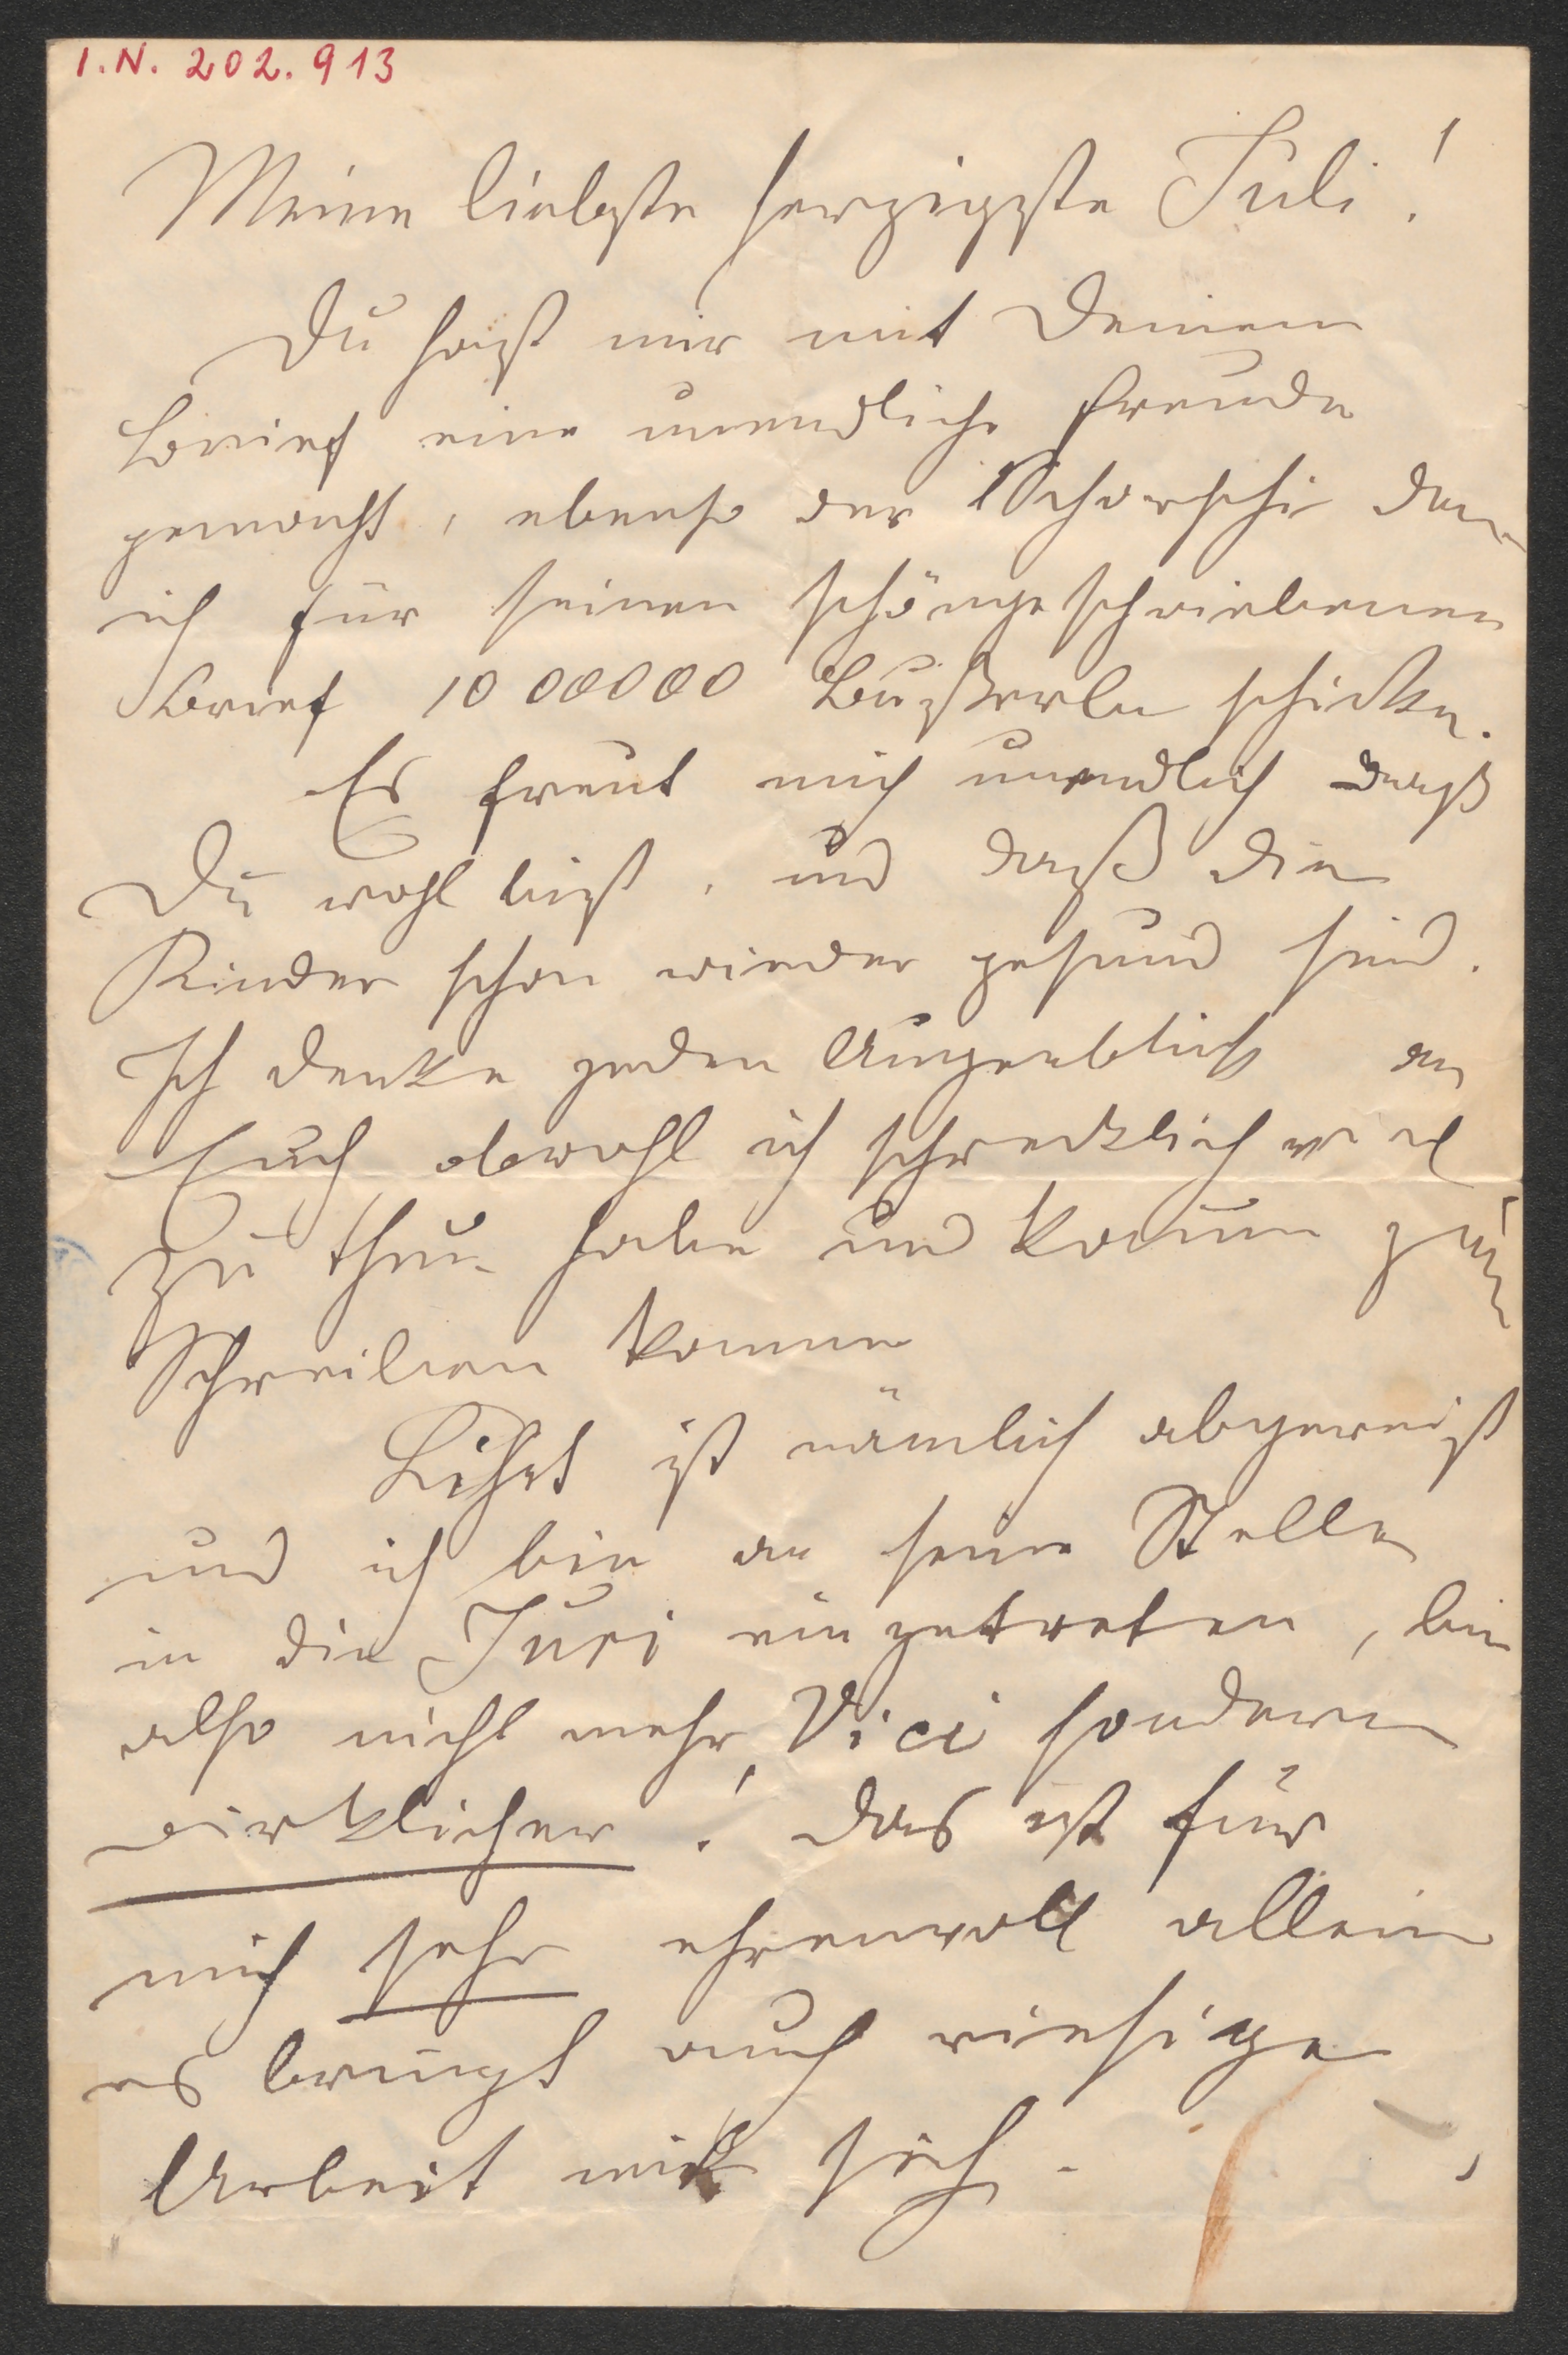 I.N. 202.913
Meine liebste herzigste Juli!
Du hast mir mit Deinem
Brief eine unendliche Freude
gemacht, ebenso der Schorschi dem
ich für seinen schöngeschriebenen
Brief 1000000 Busserln schicke.
Es freut mich unendlich daß
Du wohl bist, und daß die
Kinder schon wieder gesund sind.
Ich denke jeden Augenblick an
Euch obwohl ich schrecklich viel
zu thun habe und kaum zum
Schreiben komme
ist nämlich abgereist
und ich bin an seine Stelle
in die Juri eingetreten, bin
also nicht mehr Vici sondern
wirklicher! das ist für
mich sehr ehrenvoll allein
es bringt auch riesige
Arbeit mit sich.